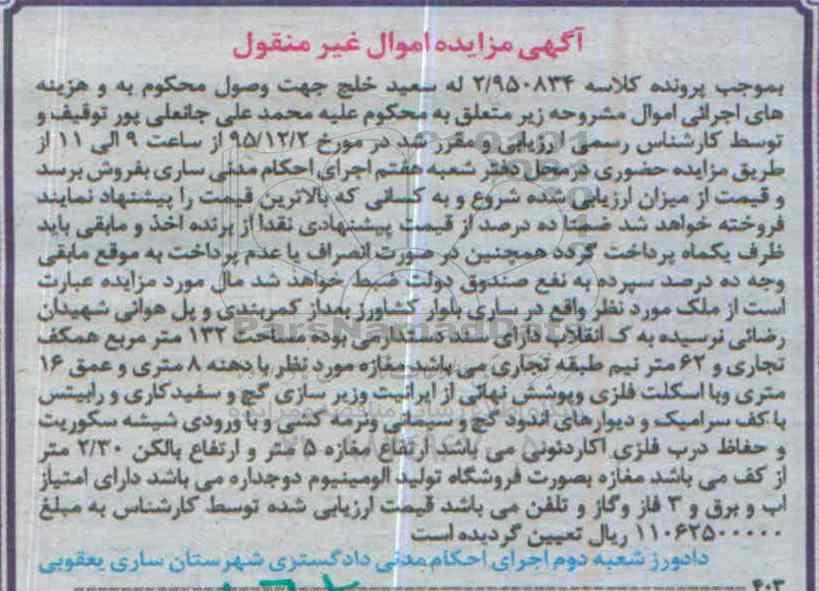 آگهی مزایده اموال غیر منقول
بموجب پرونده کلاسه ۲/۹۵۰۸۳۴ له سعید خلج جهت وصول محکوم به و هزینه
های اجرائی اموال مشروحه زیر متعلق به محکوم علیه محمد علی جانعلی پور توقیف و
توسط کارشناس رسمی ارزیابی و مقرر شد در مورخ ۹۵/۱۲/۲ از ساعت ۹ الی ۱۱ از
طریق مزایده حضوری در محل دفتر شعبه هفتم اجرای احکام مدنی ساری بفروش برسد
و قیمت از میزان ارزیابی شده شروع و به کسانی که بالاترین قیمت را پیشنهاد نمایند
فروخته خواهد شد ضمنا ده درصد از قیمت پیشنهادی نقدا از برنده اخذ و مابقی باید
ظرف یکماه پرداخت گردد همچنین در صورت انصراف یا عدم پرداخت به موقع مابقی
وجه ده درصد سپرده به نفع صندوق دولت ضبط خواهد شد مال مورد مزایده عبارت
است از ملک مورد نظر واقع در ساری بلوار کشاورز بعداز کمربندی و پل هوائی شهیدان
رضائی نرسیده به ک انقلاب دارای سند دستدارمی بوده مساحت ۱۳۲ متر مربع همکف
تجاری و ۶۲ متر نیم طبقه تجاری می باشد مغازه مورد نظر با دهنه ۸ متری و عمق ۱۶
متری وبا اسکلت فلزی وپوشش نهائی از ایرانیت وزیر سازی گچ و سفیدکاری و رابیتس
با کف سرامیک و دیوارهای اندود گچ و سیمانی ونرمه کشی و با ورودی شیشه سکوریت
و حفاظ درب فلزی آکاردئونی می باشد ارتفاع مغازه ۵ متر و ارتفاع بالکن ۲/۳۰ متر
از کف می باشد مغازه بصورت فروشگاه تولید الومینیوم دوجداره می باشد دارای امتیاز
اب و برق و ۳ فاز وگاز و تلفن می باشد قیمت ارزیابی شده توسط کارشناس به مبلغ
۱۱۰۶۲۵۰۰۰۰۰ ریال تعیین گردیده است
دادورز شعبه دوم اجرای احکام مدنی دادگستری شهرستان ساری یعقوبی
۴۰۳
ParsNamadData